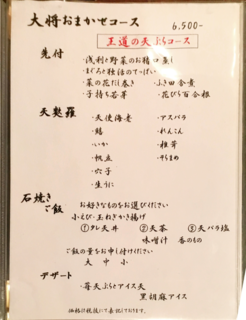 大将おまかせコース 6,500-
王道の天ぷらコース
先付
・浅利と野菜のお精口蒸し
・まぐろと独活のてっぱい
・菜の花だし巻き ・ふき田舎煮
・子持ち若芽 ・花びら百合根
天麩羅
・天使海老 ・アスパラ
・鱚 ・れんこん
・いか ・椎茸
・帆立 ・そらまめ
・穴子
・生うに
石焼きご飯
お好きなものをお選びください
小えび・玉ねぎかき揚げ
①タレ天丼 ②天茶 ③天バラ塩
味噌汁 香のもの
ご飯の量をお申し付けください
大 中 小
デザート
・苺天ぷらとアイス天
黒胡麻アイス
価格は税抜にて表記しております。